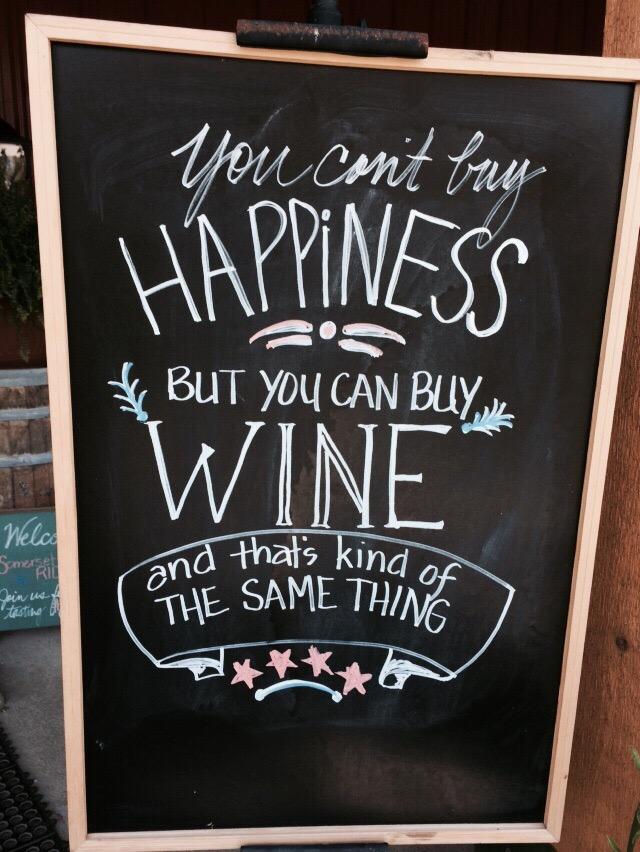 you can't buy
HAPPINESS
BUT YOU CAN BUY
WINE
and that's kind of
THE SAME THING
Somerset
Join us
tasting